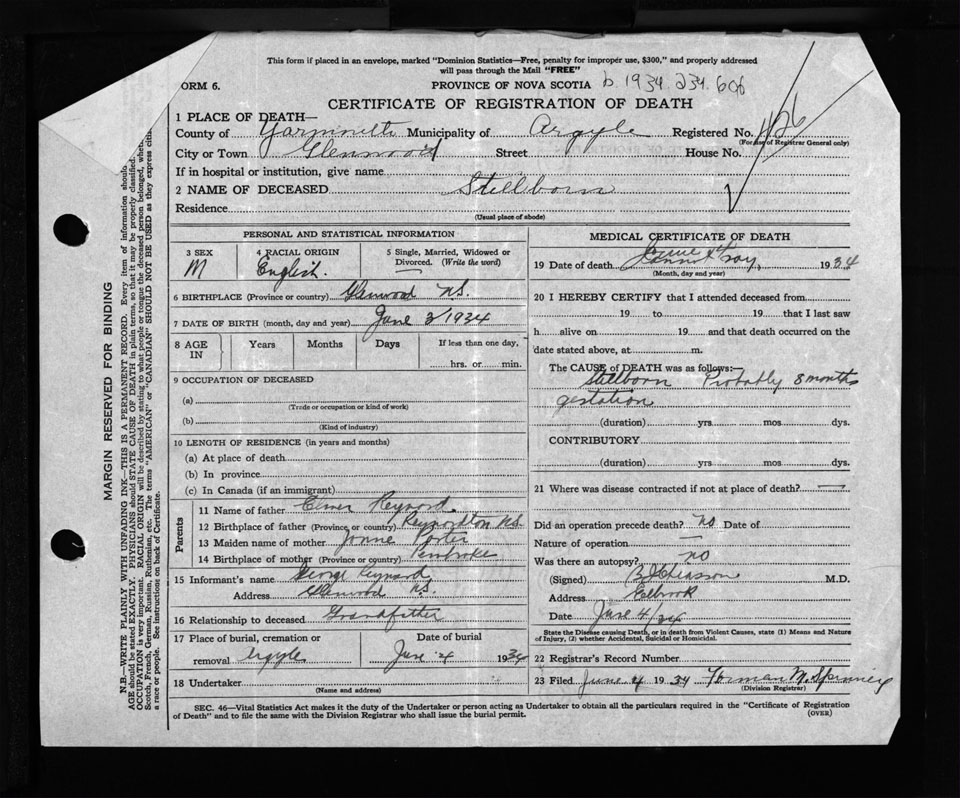 This form if placed in an envelope, marked "Dominion Statistics—Free, penalty for improper use, $300," and properly addressed
will pass through the Mail "FREE"
ORM 6. PROVINCE OF NOVA SCOTIA b. 1934. 234. 606
CERTIFICATE OF REGISTRATION OF DEATH
1 PLACE OF DEATH—
County of Yarmouth Municipality of Argyle Registered No. 1126
(For use of Registrar General only)
City or Town Glenwood Street House No.
If in hospital or institution, give name
2 NAME OF DECEASED Stillborn
Residence
(Usual place of abode)
PERSONAL AND STATISTICAL INFORMATION
3 SEX 4 RACIAL ORIGIN 5 Single, Married, Widowed or
M English. Divorced. (Write the word)
6 BIRTHPLACE (Province or country) Glenwood N.S.
7 DATE OF BIRTH (month, day and year) June 3 1934
8 AGE IN Years Months Days If less than one day,
hrs. or min.
9 OCCUPATION OF DECEASED
(a)
(Trade or occupation or kind of work)
(b)
(Kind of industry)
10 LENGTH OF RESIDENCE (in years and months)
(a) At place of death
(b) In province
(c) In Canada (if an immigrant)
Parents
11 Name of father Elmer Reynard
12 Birthplace of father (Province or country) Reynardton N.S.
13 Maiden name of mother Porter
14 Birthplace of mother (Province or country) Pembroke
15 Informant's name George Reynard
Address Glenwood N.S.
16 Relationship to deceased Grandfather
17 Place of burial, cremation or Date of burial
removal Argyle June 4 1934
18 Undertaker
(Name and address)
MEDICAL CERTIFICATE OF DEATH
19 Date of death Cannot say, 1934
(Month, day and year)
20 I HEREBY CERTIFY that I attended deceased from
19 to 19 that I last saw
h alive on 19 and that death occurred on the
date stated above, at m.
The CAUSE of DEATH was as follows:—
Stillborn Probably 8 months
gestation
(duration) yrs. mos. dys.
CONTRIBUTORY
(duration) yrs mos. dys.
21 Where was disease contracted if not at place of death? —
Did an operation precede death? No Date of
Nature of operation —
Was there an autopsy? no
(Signed) M.D.
Address Eelbrook
Date June 4/34
State the Disease causing Death, or in death from Violent Causes, state (1) Means and Nature
of Injury, (2) whether Accidental, Suicidal or Homicidal.
22 Registrar's Record Number
23 Filed June 4 1934 Norman M. Spinney
(Division Registrar)
SEC. 46—Vital Statistics Act makes it the duty of the Undertaker or person acting as Undertaker to obtain all the particulars required in the "Certificate of Registration
of Death" and to file the same with the Division Registrar who shall issue the burial permit. (OVER)
MARGIN RESERVED FOR BINDING
N.B.—WRITE PLAINLY WITH UNFADING INK—THIS IS A PERMANENT RECORD. Every item of information should
AGE should be stated EXACTLY. PHYSICIANS should STATE CAUSE OF DEATH in plain terms, so that it may be properly classified.
OCCUPATION is very important. RACIAL ORIGIN will be described by stating to what people or tongue the deceased person belonged, wheth
Scotch, French, German, Russian, Ruthenian, etc. The terms "AMERICAN" or "CANADIAN" SHOULD NOT BE USED as they express citiz
a race or people. See instructions on back of Certificate.